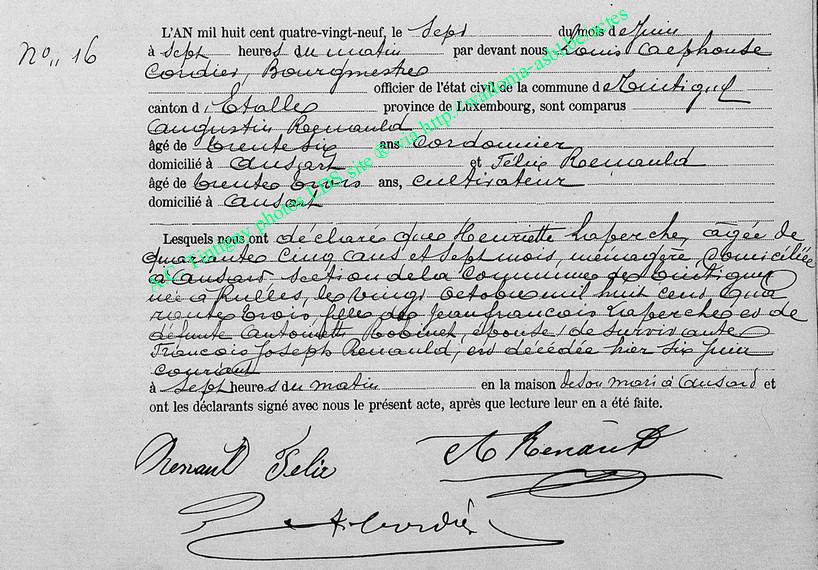 L'AN mil huit cent quatre-vingt-neuf, le Sept du mois de Juin
No 16
à Sept heures du matin par devant nous Louis Alphonse
Cordier, Bourgmestre
officier de l'état civil de la commune de Tintigny
canton d'Etalle province de Luxembourg, sont comparus
Augustin Renauld
âgé de trente six ans Cordonnier
domicilié à Ansart et Félix Renauld
âgé de trente trois ans, cultivateur
domicilié à Ansart
Lesquels nous ont déclaré que Henriette Laperche, âgée de
quarante cinq ans et sept mois, ménagère, domiciliée
à Ansart section de la commune de Tintigny
née à Rulles, le vingt octobre mil huit cent qua
rante trois fille de Jean françois Laperche et de
défunte Antoinette Robinet, épouse de survivante
François Joseph Renauld, est décédée hier six juin
courant
à Sept heures du matin en la maison de son mari à Ansart et
ont les déclarants signé avec nous le présent acte, après que lecture leur en a été faite.
Renault Felix A Renault
A Cordier
A.C. Tintigny photos LDS, site via http://wallonia-asbl.be/actes